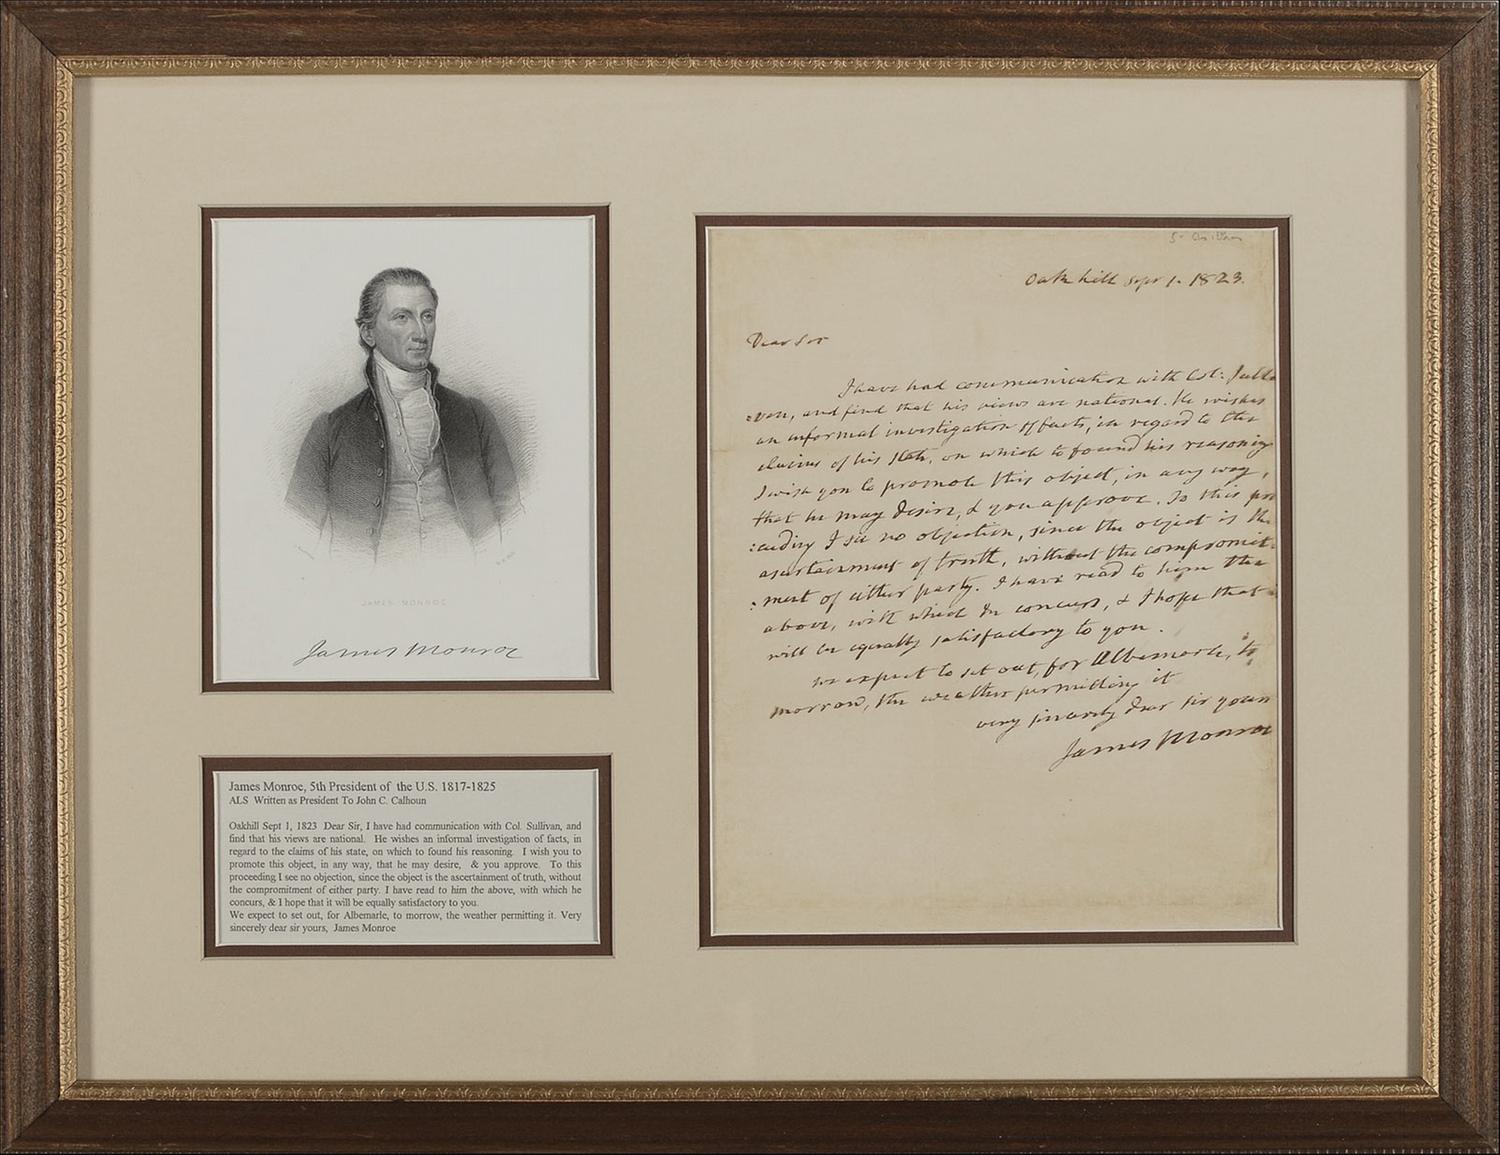 JAMES MONROE
James Monroe
James Monroe, 5th President of the U.S. 1817-1825
ALS Written as President To John C. Calhoun
Oakhill Sept 1, 1823 Dear Sir, I have had communication with Col. Sullivan, and
find that his views are national. He wishes an informal investigation of facts, in
regard to the claims of his state, on which to found his reasoning. I wish you to
promote this object, in any way, that he may desire, & you approve. To this
proceeding I see no objection, since the object is the ascertainment of truth, without
the compromitment of either party. I have read to him the above, with which he
concurs, & I hope that it will be equally satisfactory to you.
We expect to set out, for Albemarle, to morrow, the weather permitting it. Very
sincerely dear sir yours, James Monroe
Oakhill Sept 1. 1823.
Dear Sir
I have had communication with Col: Sulli
:van, and find that his views are national. He wishes
an informal investigation of facts, in regard to the
claims of his state, on which to found his reasoning
I wish you to promote this object, in any way,
that he may desire, & you approve. To this pro
:ceeding I see no objection, since the object is the
ascertainment of truth, without the compromit
:ment of either party. I have read to him the
above, with which he concurs, & I hope that it
will be equally satisfactory to you.
We expect to set out, for Albemarle, to
morrow, the weather permitting it
very sincerely dear sir yours
James Monroe